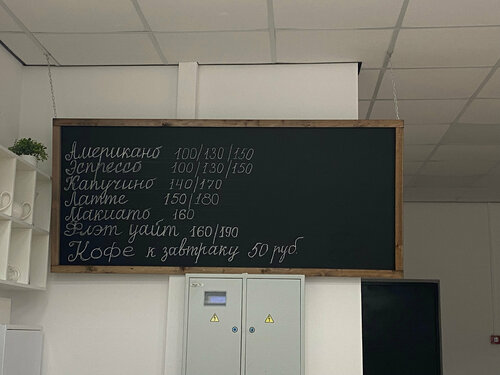 Американо 100/130/150
Эспрессо 100/130/150
Капучино 140/170
Латте 150/180
Макиато 160
Флэт уайт 160/190
Кофе к завтраку 50 руб.